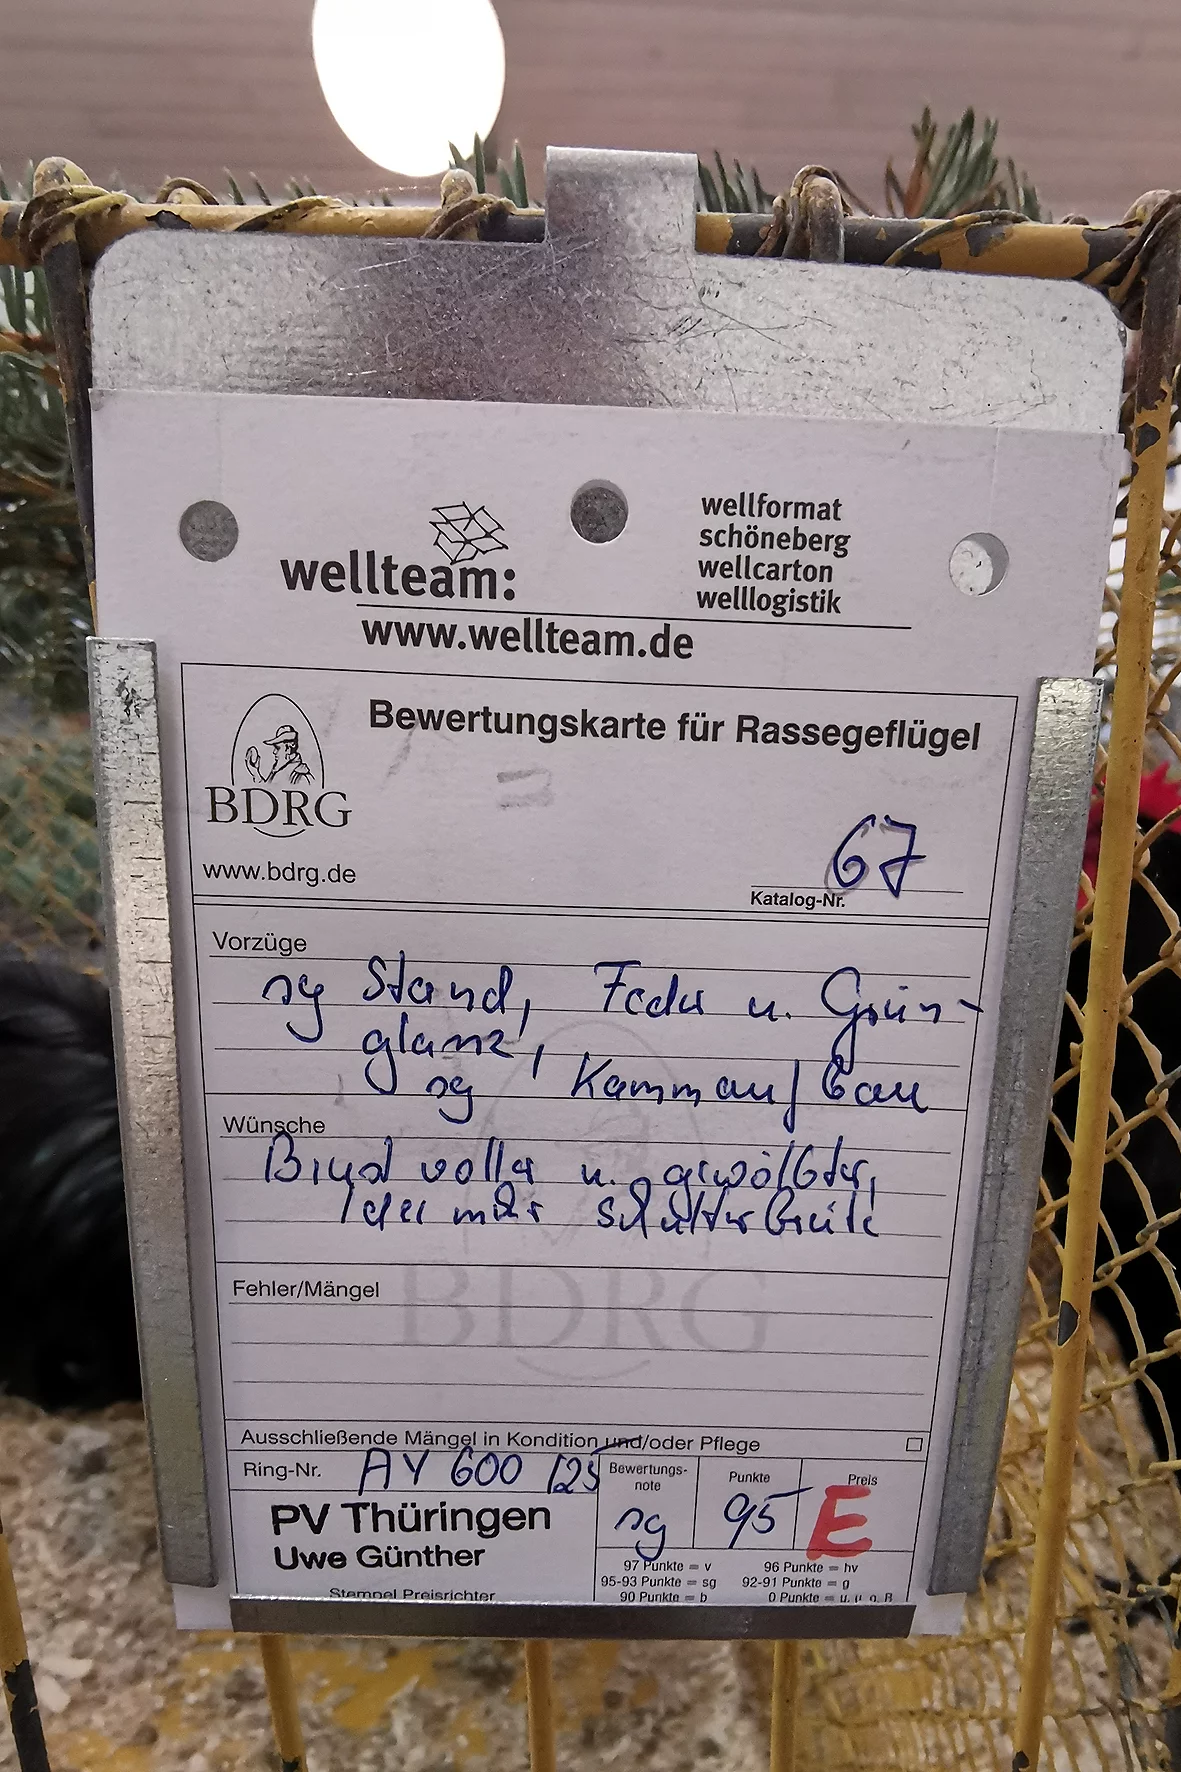 wellteam:
wellformat
schöneberg
wellcarton
welllogistik
www.wellteam.de
BDRG
Bewertungskarte für Rassegeflügel
www.bdrg.de
67
Katalog-Nr.
Vorzüge
sg Stand, Feder u. Grün-
glanz,
sg Kammaufbau
Wünsche
Brust voller u. gewölbter,
Idee mehr Schulterbreite
Fehler/Mängel
BDRG
Ausschließende Mängel in Kondition und/oder Pflege
Ring-Nr. AY 600 /25
Bewertungs-
note
sg
Punkte
95
Preis
E
PV Thüringen
Uwe Günther
Stempel Preisrichter
97 Punkte = v 96 Punkte = hv
95-93 Punkte = sg 92-91 Punkte = g
90 Punkte = b 0 Punkte = u, u. o. B